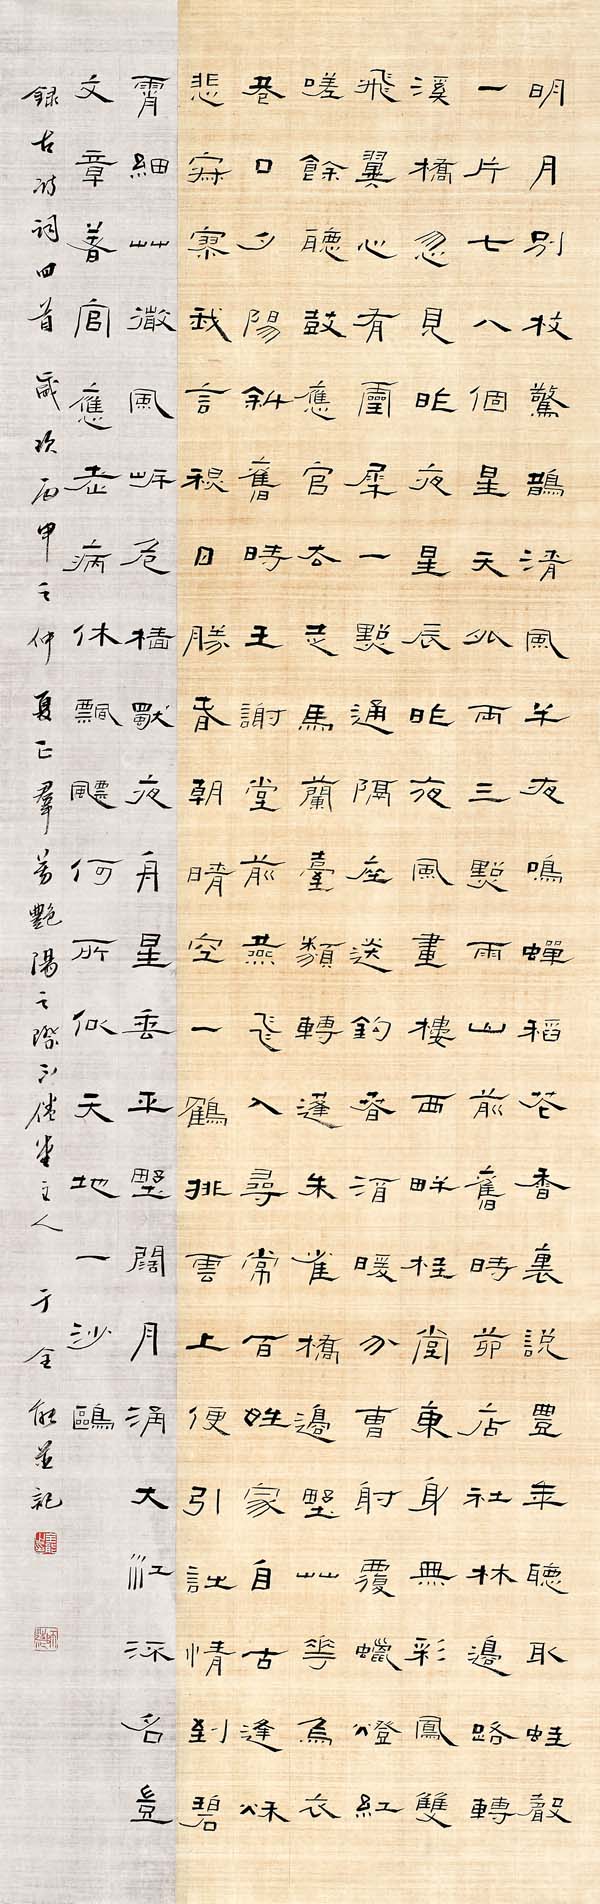 明月别枝驚鵲清風半夜鳴蟬稻花香裏說豐年聽取蛙聲
一片七八個星天外兩三點雨山前舊時茆店社林邊路轉
溪橋忽見昨夜星辰昨夜風畫樓西畔桂堂東身無彩鳳雙
飛翼心有靈犀一點通隔座送鈎春酒暖分曹射覆蠟燈紅
嗟餘聽鼓應官去走馬蘭臺類轉蓬朱雀橋邊野艸花烏衣
巷口夕陽斜舊時王謝堂前燕飛入尋常百姓家自古逢秋
悲寂寥我言秋日勝春朝晴空一鶴排雲上便引詩情到碧
霄細艸微風岸危檣獨夜舟星垂平野闊月涌大江流名豈
文章著官應老病休飄飄何所似天地一沙鷗
録古詩詞四首歲次丙申之仲夏正羣芳艷陽之際不倦堂主人于全能並記